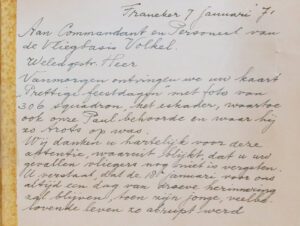 Franeker 7 januari 71
Aan Commandant en Personeel van
de Vliegbasis Volkel.
Weledelgestr. Heer
Vanmorgen ontvingen we uw kaart
Prettige feestdagen met foto van
306 squadron, het eskader, waartoe
ook onze Paul behoorde en waar hij
zo trots op was.
Wij danken u hartelijk voor deze
attentie, waaruit blijkt, dat u uw
gevallen vliegers nog niet is vergeten.
U verstaat, dat de 18e januari voor ons
altijd een dag van droeve herinnering
zal blijven, toen zijn jonge, veelbe-
lovende leven zo abrupt werd